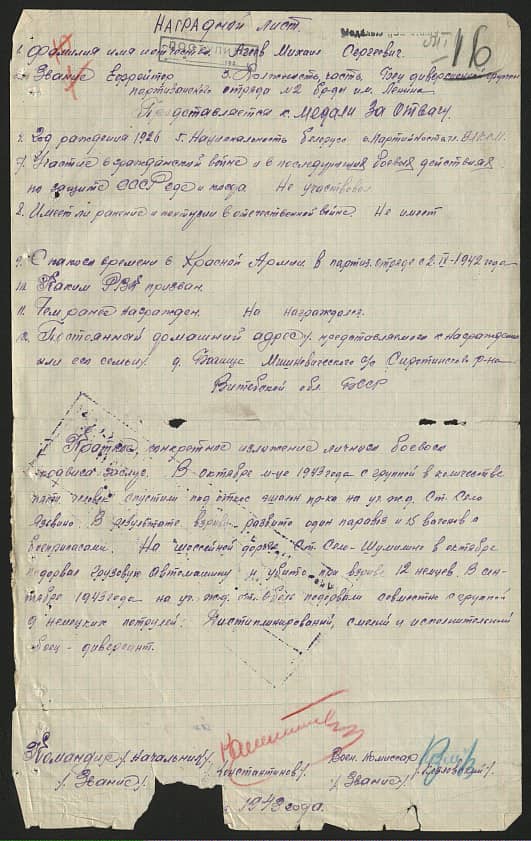 НАГРАДНОЙ ЛИСТ.
16
1. Фамилия имя Михаил Сергеевич.
2. Звание Ефрейтор 3. Должность, часть. Боец диверсионной группы
партизанского отряда №2 бр-ды им. Ленина
Представляется к медали За Отвагу.
4. Год рождения 1926 5. Национальность белорус 6. Партийность
7. Участие в гражданской войне и в последующих боевых действиях
по защите СССР где и когда Не участвовал
8. Имеет ли ранение и контузии в отечественной войне. Не имеет
9. С какого времени в Красной Армии. в партиз. отряде с 1942 года
10. Каким РВК призван.
11. Чем ранее награжден. На награждался.
12. Постоянный домашний адрес представляемого к награждению
или его семьи. д. с/с Сиротинского р-на
Витебской обл. БССР
I Краткое, конкретное изложение личного боевого
подвига заслуг. В октябре м-це 1943 года с группой в количестве
человек спустили под откос эшалон пр-ка на уч. ж.д. Ст. Село
Язвино. В результате взрыва развито один паравоз и 15 вагонов с
боеприпасами. На шоссейной дороге Ст. Село-Шумилино в октябре
подорвал грузовую автомашину и убито при взрыве 12 немцев. В сен-
тябре 1943 года на уч. ж.д. подорвали совместно с группой
9 немецких патрулей. Дистиплинированный, смелый и исполнительный
боец - диверсант.
Командир /Начальник/ /Константинов/ Воен. Комиссар
/Звание/. /Звание/.
1943 года.